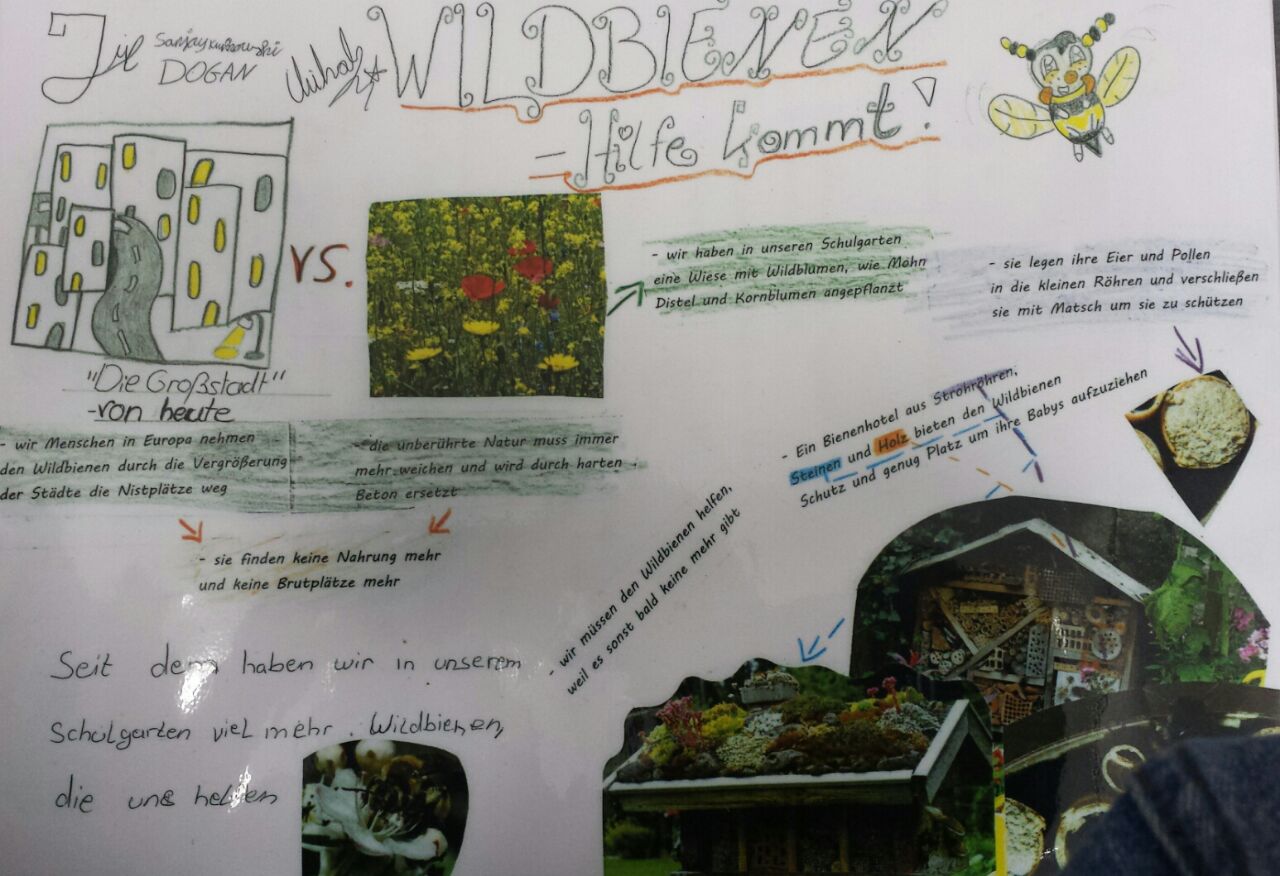 Jil
Sanjay
DOGAN
WILDBIENEN
-Hilfe kommt!
VS.
"Die Großstadt"
-von heute
- wir haben in unseren Schulgarten
eine Wiese mit Wildblumen, wie Mohn
Distel und Kornblumen angepflanzt
- sie legen ihre Eier und Pollen
in die kleinen Röhren und verschließen
sie mit Matsch um sie zu schützen
- wir Menschen in Europa nehmen
den Wildbienen durch die Vergrößerung
der Städte die Nistplätze weg
- die unberührte Natur muss immer
mehr weichen und wird durch harten
Beton ersetzt
- sie finden keine Nahrung mehr
und keine Brutplätze mehr
- Ein Bienenhotel aus Strohröhren,
Steinen und Holz bieten den Wildbienen
Schutz und genug Platz um ihre Babys aufzuziehen
- wir müssen den Wildbienen helfen,
weil es sonst bald keine mehr gibt
Seit dem haben wir in unserem
Schulgarten viel mehr Wildbienen,
die uns helfen